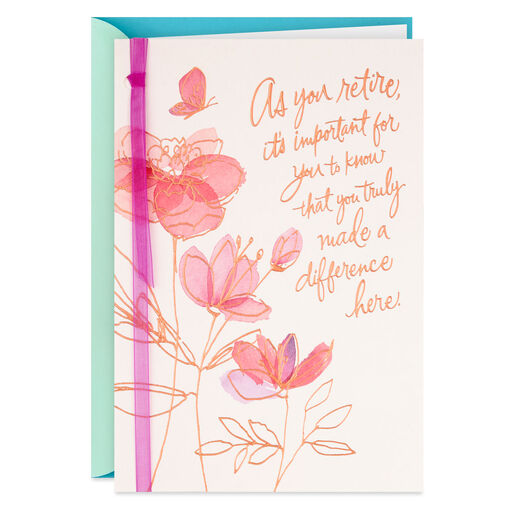 As you retire,
it's important for
you to know
that you truly
made a
difference
here.